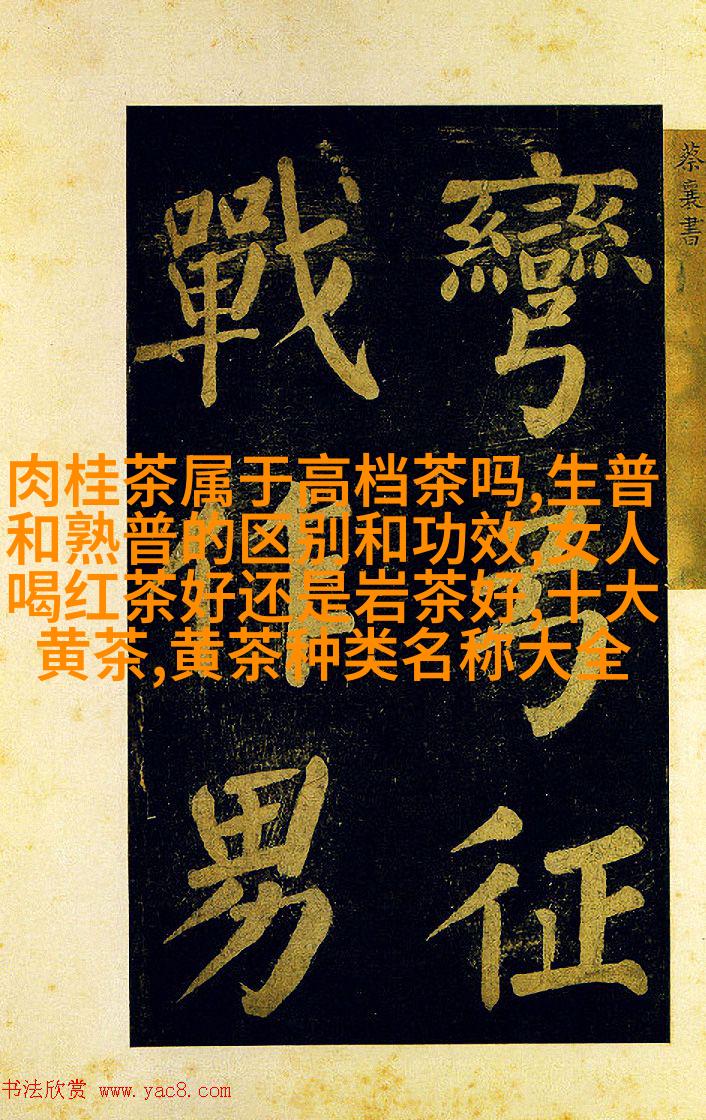 蔡襄書
彎弓征
戰作男
肉桂茶属于高档茶吗,生普
和熟普的区别和功效,女人
喝红茶好还是岩茶好,十大
黄茶,黄茶种类名称大全
书法欣赏 www.yac8.com